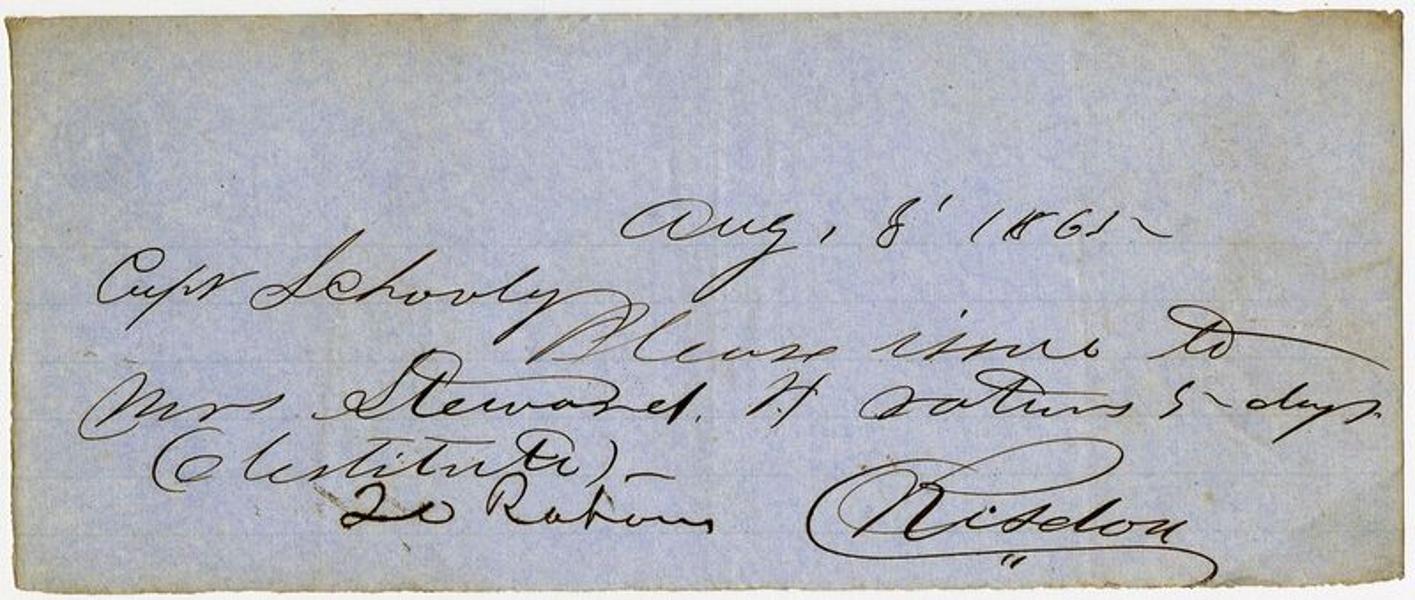 Aug, 8' 1865
Capt Schooly
Please issue to
Mrs Steward. 4 rations 5 days
(destitute) -
20 Rations Risdon